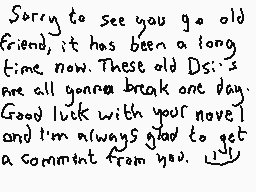 Sorry to see you go old
friend, it has been a long
time now. These old Dsi's
are all gonna break one day.
Good luck with your novel
and I'm always glad to get
a comment from you.